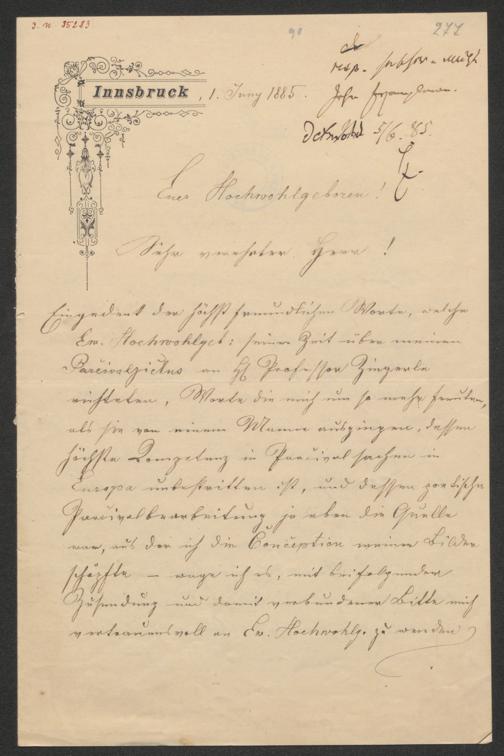 J. N. 35283
90
277
resp.
Zehn Exemplare.
5/6. 85.
Innsbruck, 1. Juny 1885.
Euer Hochwohlgeboren!
Sehr verehrter Herr!
Eingedenk der höchst freundlichen Worte, welche
Ew. Hochwohlgeb: seiner Zeit über meinen
Parcivalzictus an H. Professor Zingerle
richteten, Worte die mich um so mehr freuten,
als sie von einem Manne ausgingen, dessen
höchste Competenz in Parcivalsachen in
Europa unbestritten ist, und dessen poetische
Parcivalbearbeitung ja eben die Quelle
war, aus der ich die Conception meiner Bilder
schöpfte – wage ich es, mit beifolgender
Zusendung und damit verbundener Bitte mich
vertrauensvoll an Ew. Hochwohlg. zu wenden